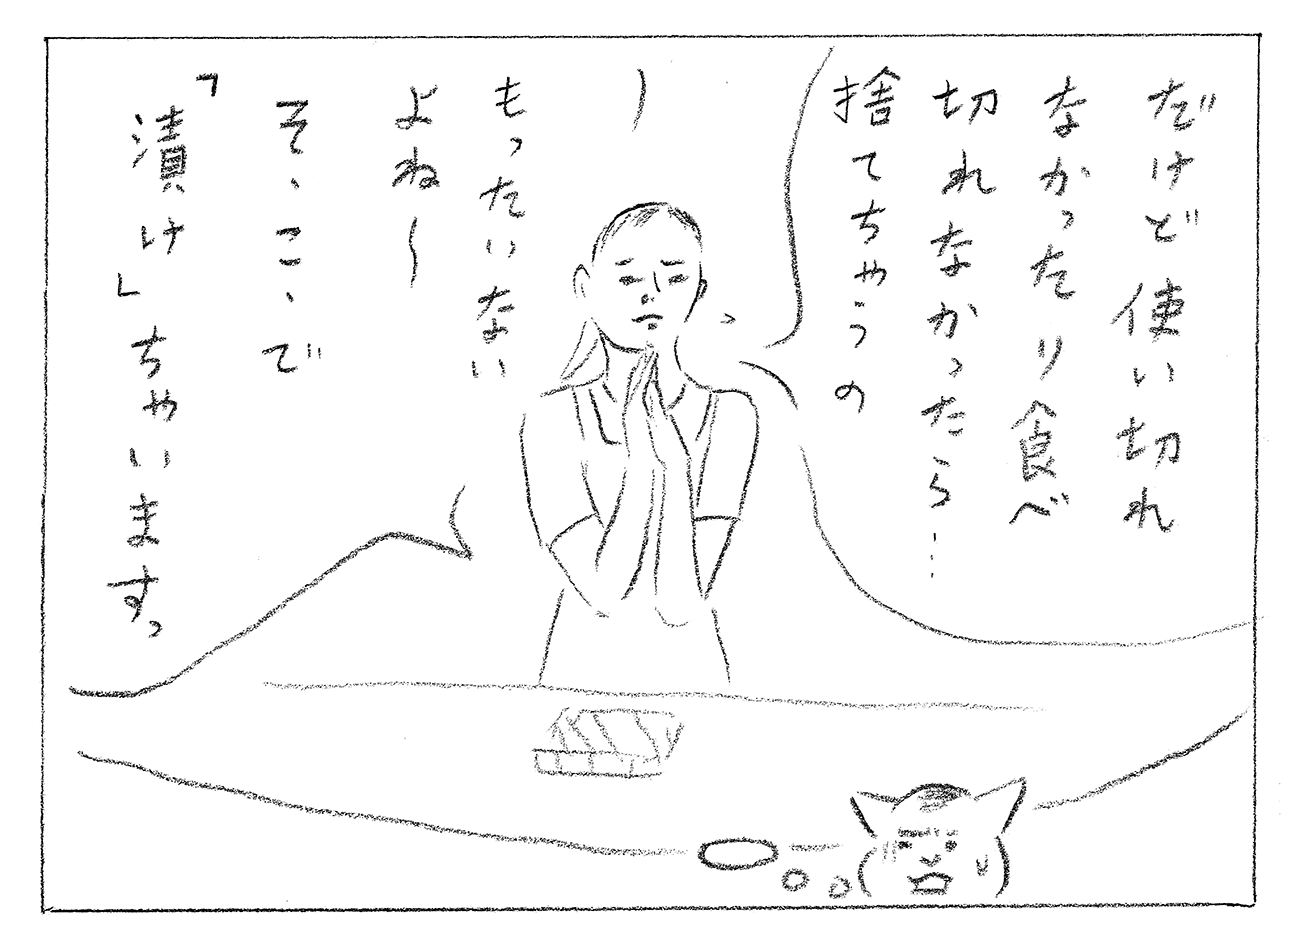 だけど使い切れ
なかったり食べ
切れなかったら…
捨てちゃうの
もったいない
よね〜
そ、こ、で
「漬け」ちゃいますっ